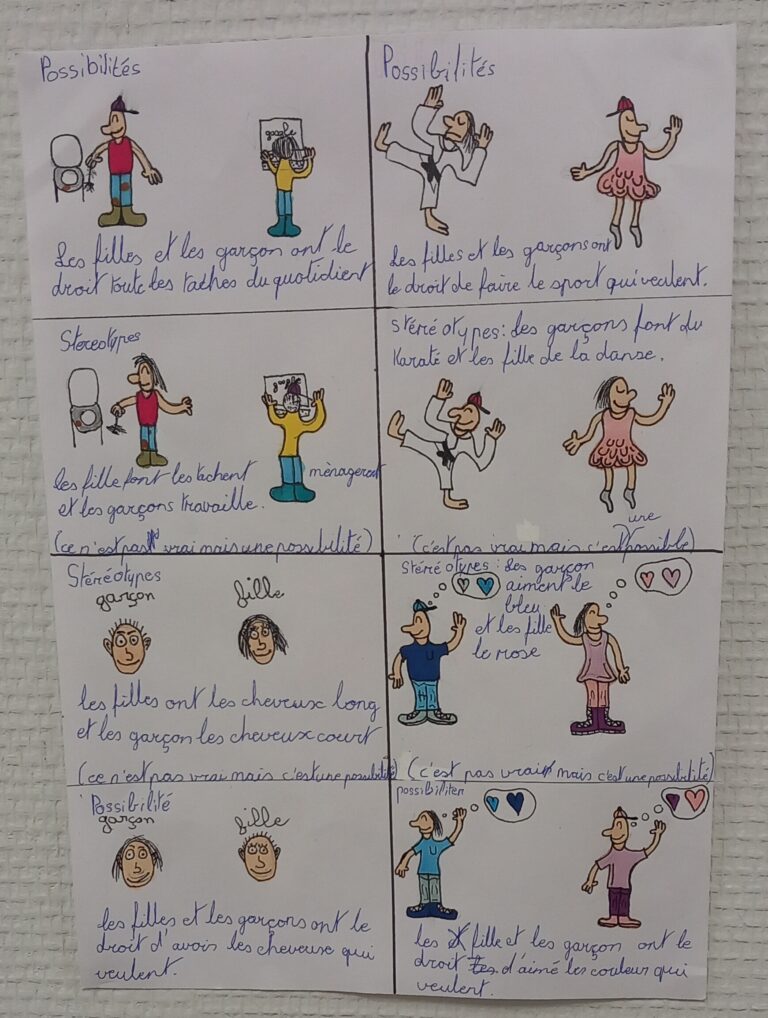 Possibilités
google
Les filles et les garçon ont le
droit toute les taches du quotidient
Possibilités
Les filles et les garçons ont
le droit de faire le sport qui veulent.
Stereotypes
google
les fille font les tachent
ménagerent
et les garçons travaille.
(ce n'est pas vrai mais une possibilité)
Stéréotypes: les garçons font du
Karaté et les fille de la danse.
(c'est pas vrai mais c'est une possible)
Stéréotypes
garçon
fille
les filles ont les cheveux long
et les garçon les cheveux court
(ce n'est pas vrai mais c'est une possibilité)
Stéréotypes: Les garçon
aiment le
bleu
et les fille
le rose
U
(c'est pas vrai mais c'est une possibilité)
Possibilité
garçon
fille
les filles et les garçons ont le
droit d'avois les cheveuse qui
veulent.
possibiliter
U
les fille et les garçon ont le
droit d'aimé les couleur qui
veulent.